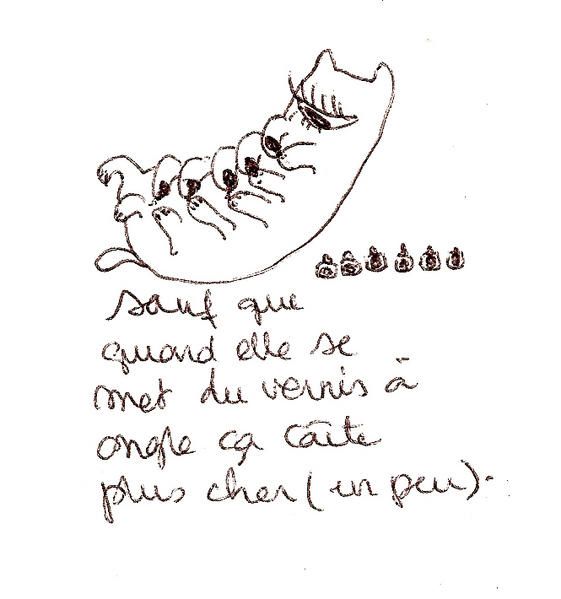 sauf que
quand elle se
met du vernis à
ongle ça câite
plus cher (un peu).